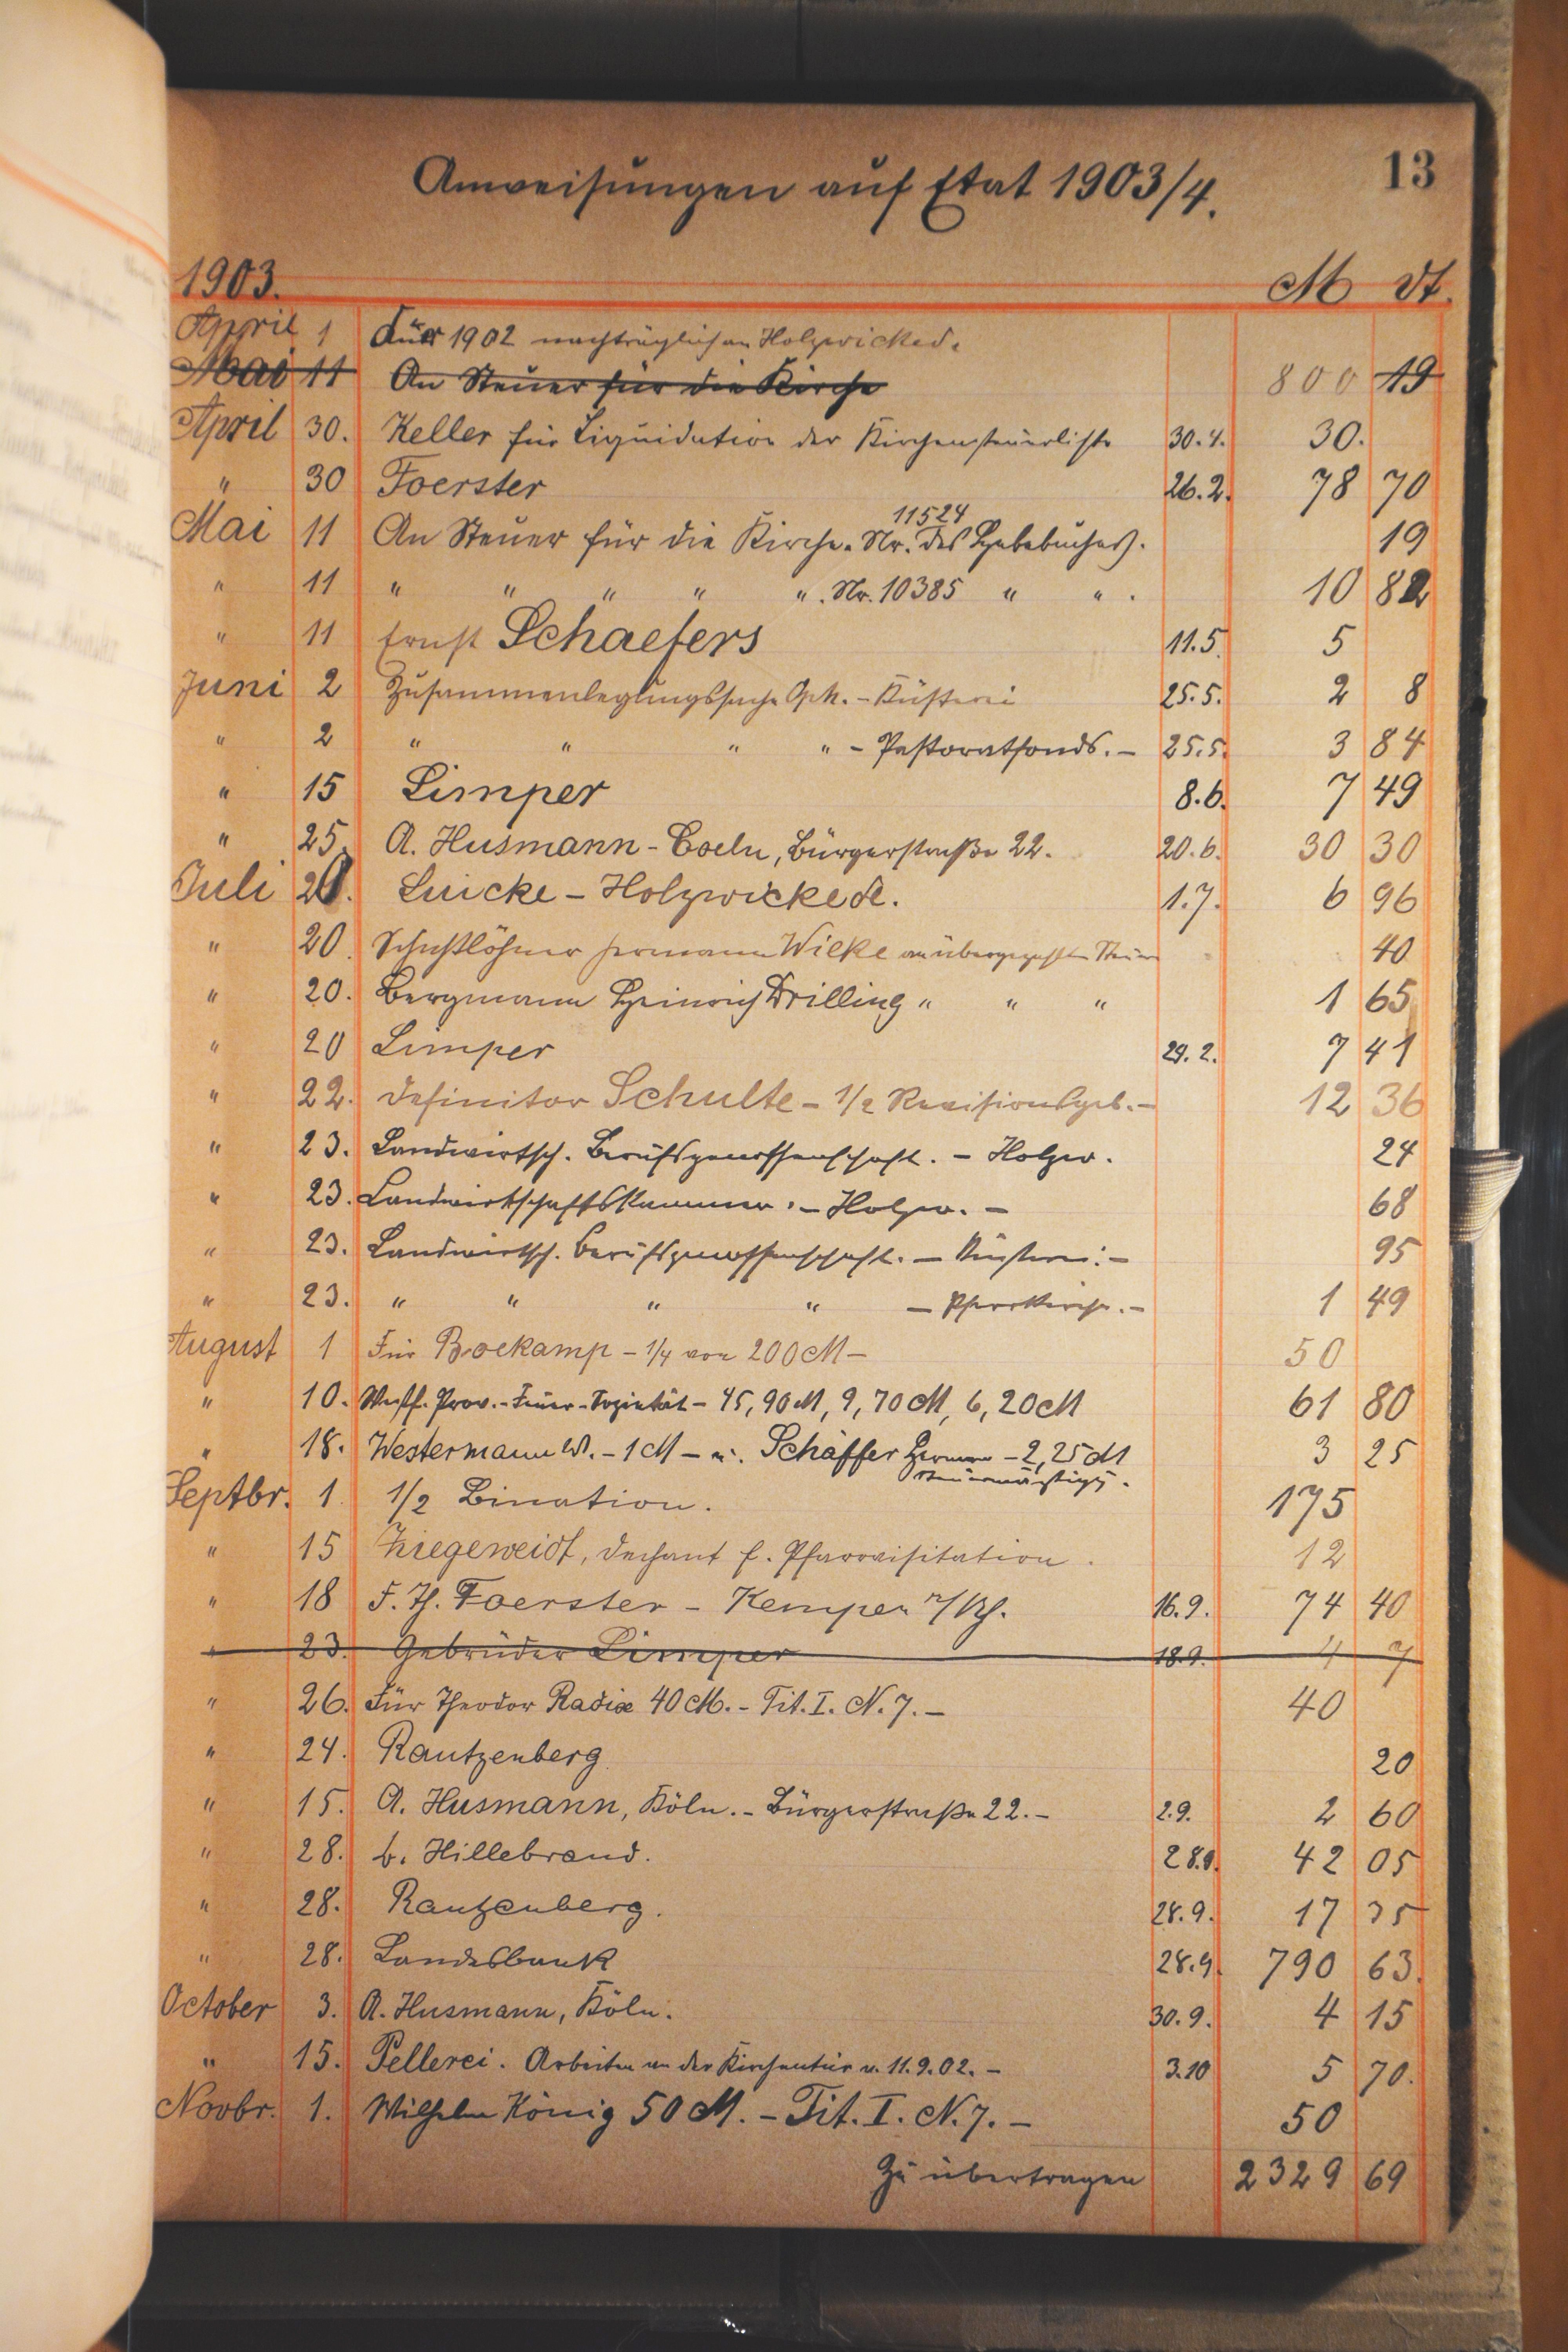 13
Anweisungen auf Etat 1903/4.
1903. M ₰.
April 1 Für 1902 nachträglich an Holzwickede.
Mai 11 An Steuer für die Kirche 800 19
April 30. Keller für Liquidation der Kirchensteuerliste 30.4. 30.
" 30 Foerster 26.2. 78 70
Mai 11 An Steuer für die Kirche. Nr. 11524 des Hebebuches. 19
" 11 " " " " ". Nr. 10385 " " . 10 82
" 11 Ernst Schaefers 11.5. 5
Juni 2 Zusammenlegungssache Oph. - Küsterei 25.5. 2 8
" 2 " " " " - Pastoratfonds. - 25.5. 3 84
" 15 Limper 8.6. 7 49
" 25. A. Husmann - Coeln, Bürgerstraße 22. 20.6. 30 30
Juli 20. Luicke - Holzwickede. 1.7. 6 96
" 20. Hermann Wilke an überzahlter Steuer 40
" 20. Bergmann Heinrich Drilling " " " 1 65
" 20 Limper 29.2. 7 41
" 22. Definitor Schulte - 1/2 Revisionsgeb. - 12 36
" 23. Landwirtsch. Berufsgenossenschaft. - Holzw. 24
" 23. Landwirtschaftskammer. - Holzw. - 68
" 23. Landwirtsch. Berufsgenossenschaft. - Küsterei. - 95
" 23. " " " " - Pfarrkirche. - 1 49
August 1 Für Boekamp - 1/4 von 200 M - 50
" 10. Westf. Prov. - Feuer - Sozietät - 45,90 M, 9,70 M, 6,20 M 61 80
" 18. Westermann W. - 1 M - u. Schäffer Herman - 2,25 M 3 25
Septbr. 1 1/2 Bination. 175
" 15 Ziegeweidt, Dechant f. Pfarrvisitation. 12
" 18 F. Th. Foerster - Kempen a/Rh. 16.9. 74 40
" 23. Gebrüder Limper 18.9. 4 7
" 26. Für Theodor Radix 40 M. - Tit. I. N. 7. - 40
" 24. Rautzenberg. 20
" 15. A. Husmann, Köln. - Bürgerstraße 22. - 2.9. 2 60
" 28. b. Hillebrand. 28.9. 42 05
" 28. Rautzenberg. 28.9. 17 35
" 28. Landesbank 28.9. 790 63.
October 3. A. Husmann, Köln. 30.9. 4 15
" 15. Pellerei. Arbeiten an der Kirchentür v. 11.9.02. - 3.10 5 70.
Novbr. 1. Wilhelm König 50 M. - Tit. I. N. 7. - 50
Zu übertragen 2329 69